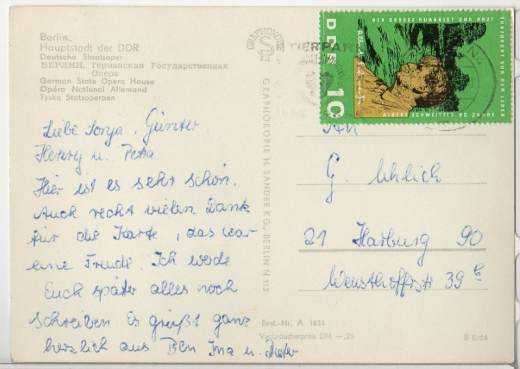 Berlin,
Hauptstadt der DDR
Deutsche Staatsoper
БЕРЛИН, Германская Государственная
Опера
German State Opera House
Opéra National Allemand
Tyska Statsoperaen
Liebe Sonja, Günter,
Henry u. Petra
Hier ist es sehr schön.
Auch recht vielen Dank
für die Karte, das war
eine Freude. Ich werde
Euch später alles noch
schreiben. Es grüßt ganz
herzlich aus Bln Ina u. Dieter
GRAPHOKOPIE H. SANDER KG, BERLIN N 113
GRAPHOKOPIE
TIERPARK
DER GROSSE HUMANIST UND ARZT
ALBERT SCHWEITZER · 90 JAHRE
DDR 10
An
G. Uhlich
21 Harburg 90
Weusthoffstr 39 b
Best.-Nr. A 1634
Verbraucherpreis DM —,25